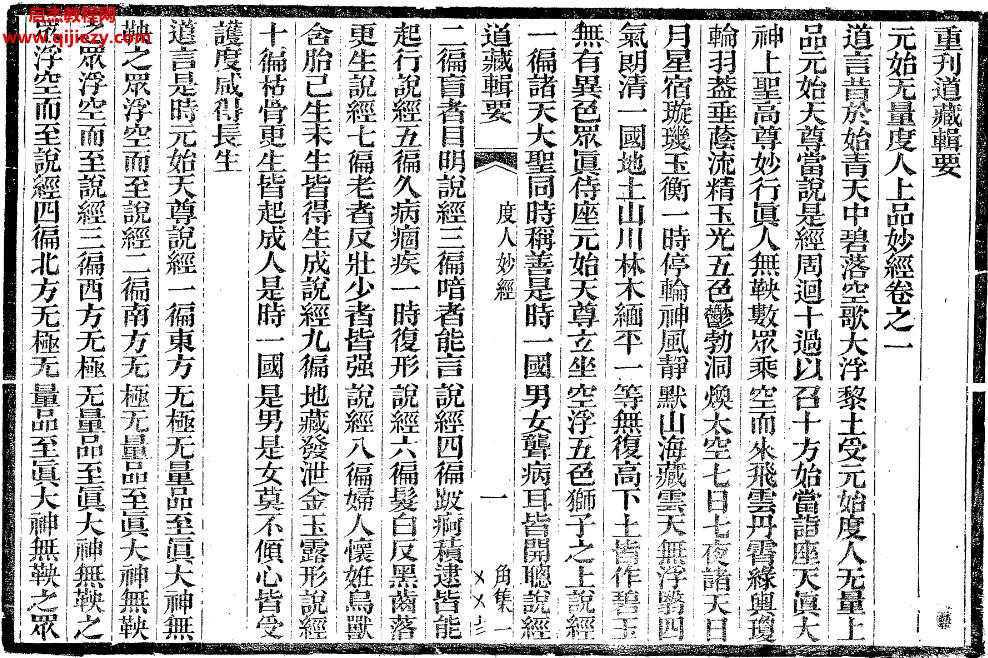 启杰教程网
www.qijiezy.com
重刊道藏輯要
元始无量度人上品妙經卷之一
道言昔於始青天中碧落空歌大浮黎土受元始度人无量上
品元始天尊當說是經周迴十過以召十方始當詣座天眞大
神上聖高尊妙行眞人無鞅數眾乘空而來飛雲丹霄綠輿瓊
輪羽葢垂蔭流精玉光五色鬱勃洞煥太空七日七夜諸天日
月星宿璇璣玉衡一時停輪神風靜默山海藏雲天無浮翳四
氣朗清一國地土山川林木緬平一等無復高下土皆作碧玉
無有異色眾眞侍座元始天尊玄坐空浮五色獅子之上說經
一徧諸天大聖同時稱善是時一國男女聾病耳皆開聰說經
道藏輯要
度人妙經
一
角集一
二徧盲者目明說經三徧喑者能言說經四徧跛痾積逮皆能
起行說經五徧久病痼疾一時復形說經六徧髮白反黑齒落
更生說經七徧老者反壯少者皆强說經八徧婦人懷姙鳥獸
含胎已生未生皆得生成說經九徧地藏發泄金玉露形說經
十徧枯骨更生皆起成人是時一國是男是女莫不傾心皆受
護度咸得長生
道言是時元始天尊說經一徧東方无極无量品至眞大神無
鞅之眾浮空而至說經二徧南方无極无量品至眞大神無鞅
之眾浮空而至說經三徧西方无極无量品至眞大神無鞅之
眾浮空而至說經四徧北方无極无量品至眞大神無鞅之眾